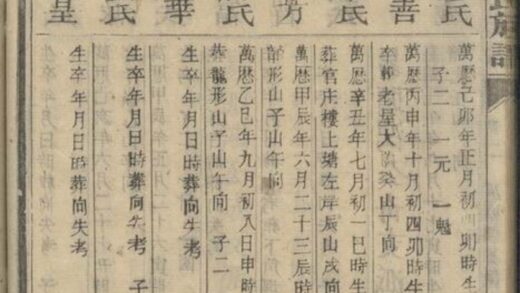 族譜
民
善
民
民
華
民
皇
萬曆己卯年正月初四卯時生
子二 一元 一魁
萬曆丙申年十月初四卯時生
老屋大癸山丁向
萬曆辛丑年七月初一巳時生
葬官庄樓上塘左岸辰山戌向
萬曆甲辰年六月二十三辰時
形山子山午向
萬曆乙巳年九月初八日申時
葬龍形山子山午向 子二
生卒年月日時葬向失考
生卒年月日時葬向失考 子
生卒年月日時葬向失考